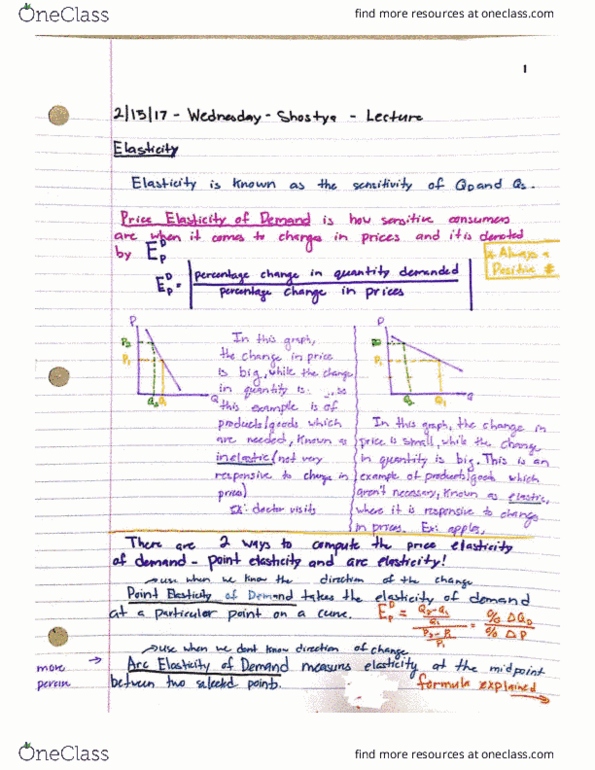 OneClass
find more resources at oneclass.com
1
2/13/17 - Wednesday - Shostya - Lecture
Elasticity
Elasticity is known as the sensitivity of QD and Qs.
Price Elasticity of Demand is how sensitive consumers
are when it comes to changes in prices and it is denoted
by E^D_P
* Always a
Positive #
E^D_P = | percentage change in quantity demanded
percentage change in prices |
P
P2
P1
Q2 Q1
Q
In this graph,
the change in price
is big, while the change
in quantity is
this example is of
products/goods which
are needed, known as
inelastic (not very
responsive to change in
price)
Ex: doctor visits
P
P2
P1
Q2
Q1
Q
In this graph, the change in
price is small, while the change
in quantity is big. This is an
example of products/goods which
aren't necessary, known as elastic,
where it is responsive to change
in prices. Ex: apples,
There are 2 ways to compute the price elasticity
of demand - point elasticity and arc elasticity!
→ use when we know the direction of the change
Point Elasticity of Demand takes the elasticity of demand
at a particular point on a curve.
E^D_P = Q2-Q1
Q1
P2-P1
P1
= % ΔQD
% ΔP
→ use when we dont know direction of change
more →
Arc Elasticity of Demand measures elasticity at the midpoint
between two selected point.
formula explained
OneClass
find more resources at oneclass.com